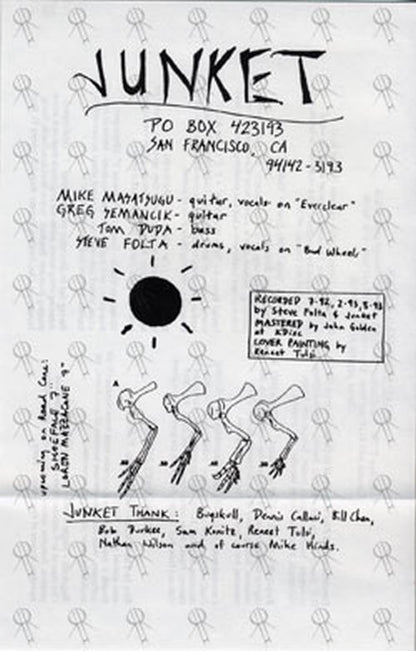 JUNKET
PO BOX 423193
SAN FRANCISCO, CA
94142-3193
MIKE MASATSUGU - guitar, vocals on "Everclear"
GREG SEMANCIK - guitar
TOM DUDA - bass
STEVE FOLTA - drums, vocals on "Bud Wheels"
RECORDED 7-92, 2-93, 5-93
by Steve Folta & Junket
MASTERED by John Golden
at KDisc
COVER PAINTING by
Reneet Tulsi
upcoming on Road Cone:
7"
LOREN MAZZACANE 7"
A
JUNKET THANK: Bugskull, Dennis Callaci, Bill Chen,
Bob Durkee, Sam Kunitz, Reneet Tulsi,
Nathan Wilson and of course Mike Hinds.